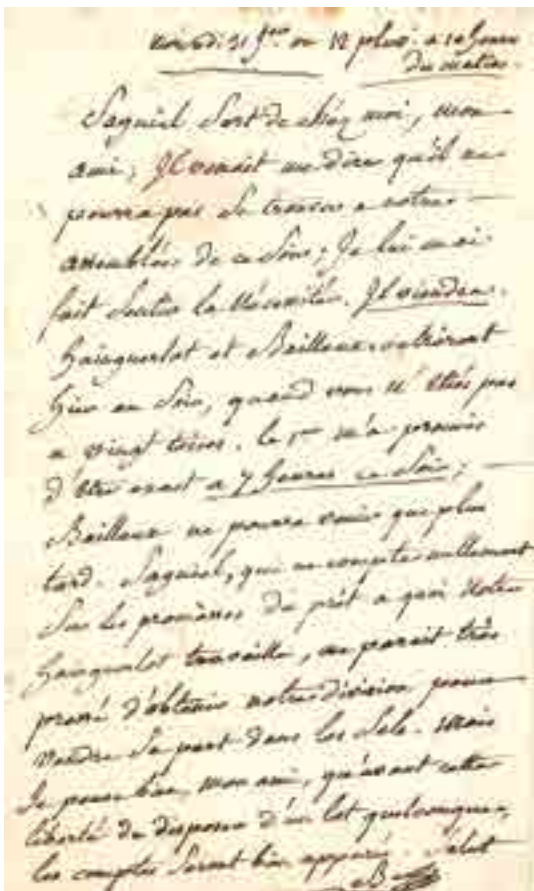 31 Jer ou 12 pluv. a 10 heures
du matin.
Saguiel sort de chez moi, mon
ami; Il venoit me dire qu'il ne
pourra pas se trouver a notre
assemblée de ce soir; Je lui en ai
fait sentir la nécessité. Il viendra.
hainguerlot et Bailleux entrèrent
hier au soir, quand vous n'étiés pas
a vingt . le 1er m'a promis
d'être exact a 7 heures ce soir;
Bailleux ne pourra venir que plus
tard. Saguiel, qui ne compte nullement
sur les promesses de prêt a quoi notre
hainguerlot travaille, me parait très
pressé d'obtenir notre division pour
vendre sa part dans les sels. mais
Je pense bien, mon ami, qu'avant cette
liberté de disposer d'un lot quelconque,
les comptes seront bien apparié. Salut
B